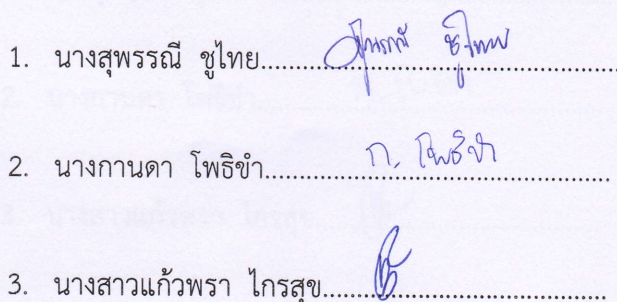 1. นางสุพรรณี ชูไทย........................................ สุพรรณี ชูไทย
2. นางกานดา โพธิขำ........................................ ก. โพธิขำ
3. นางสาวแก้วพรา ไกรสุข........................................